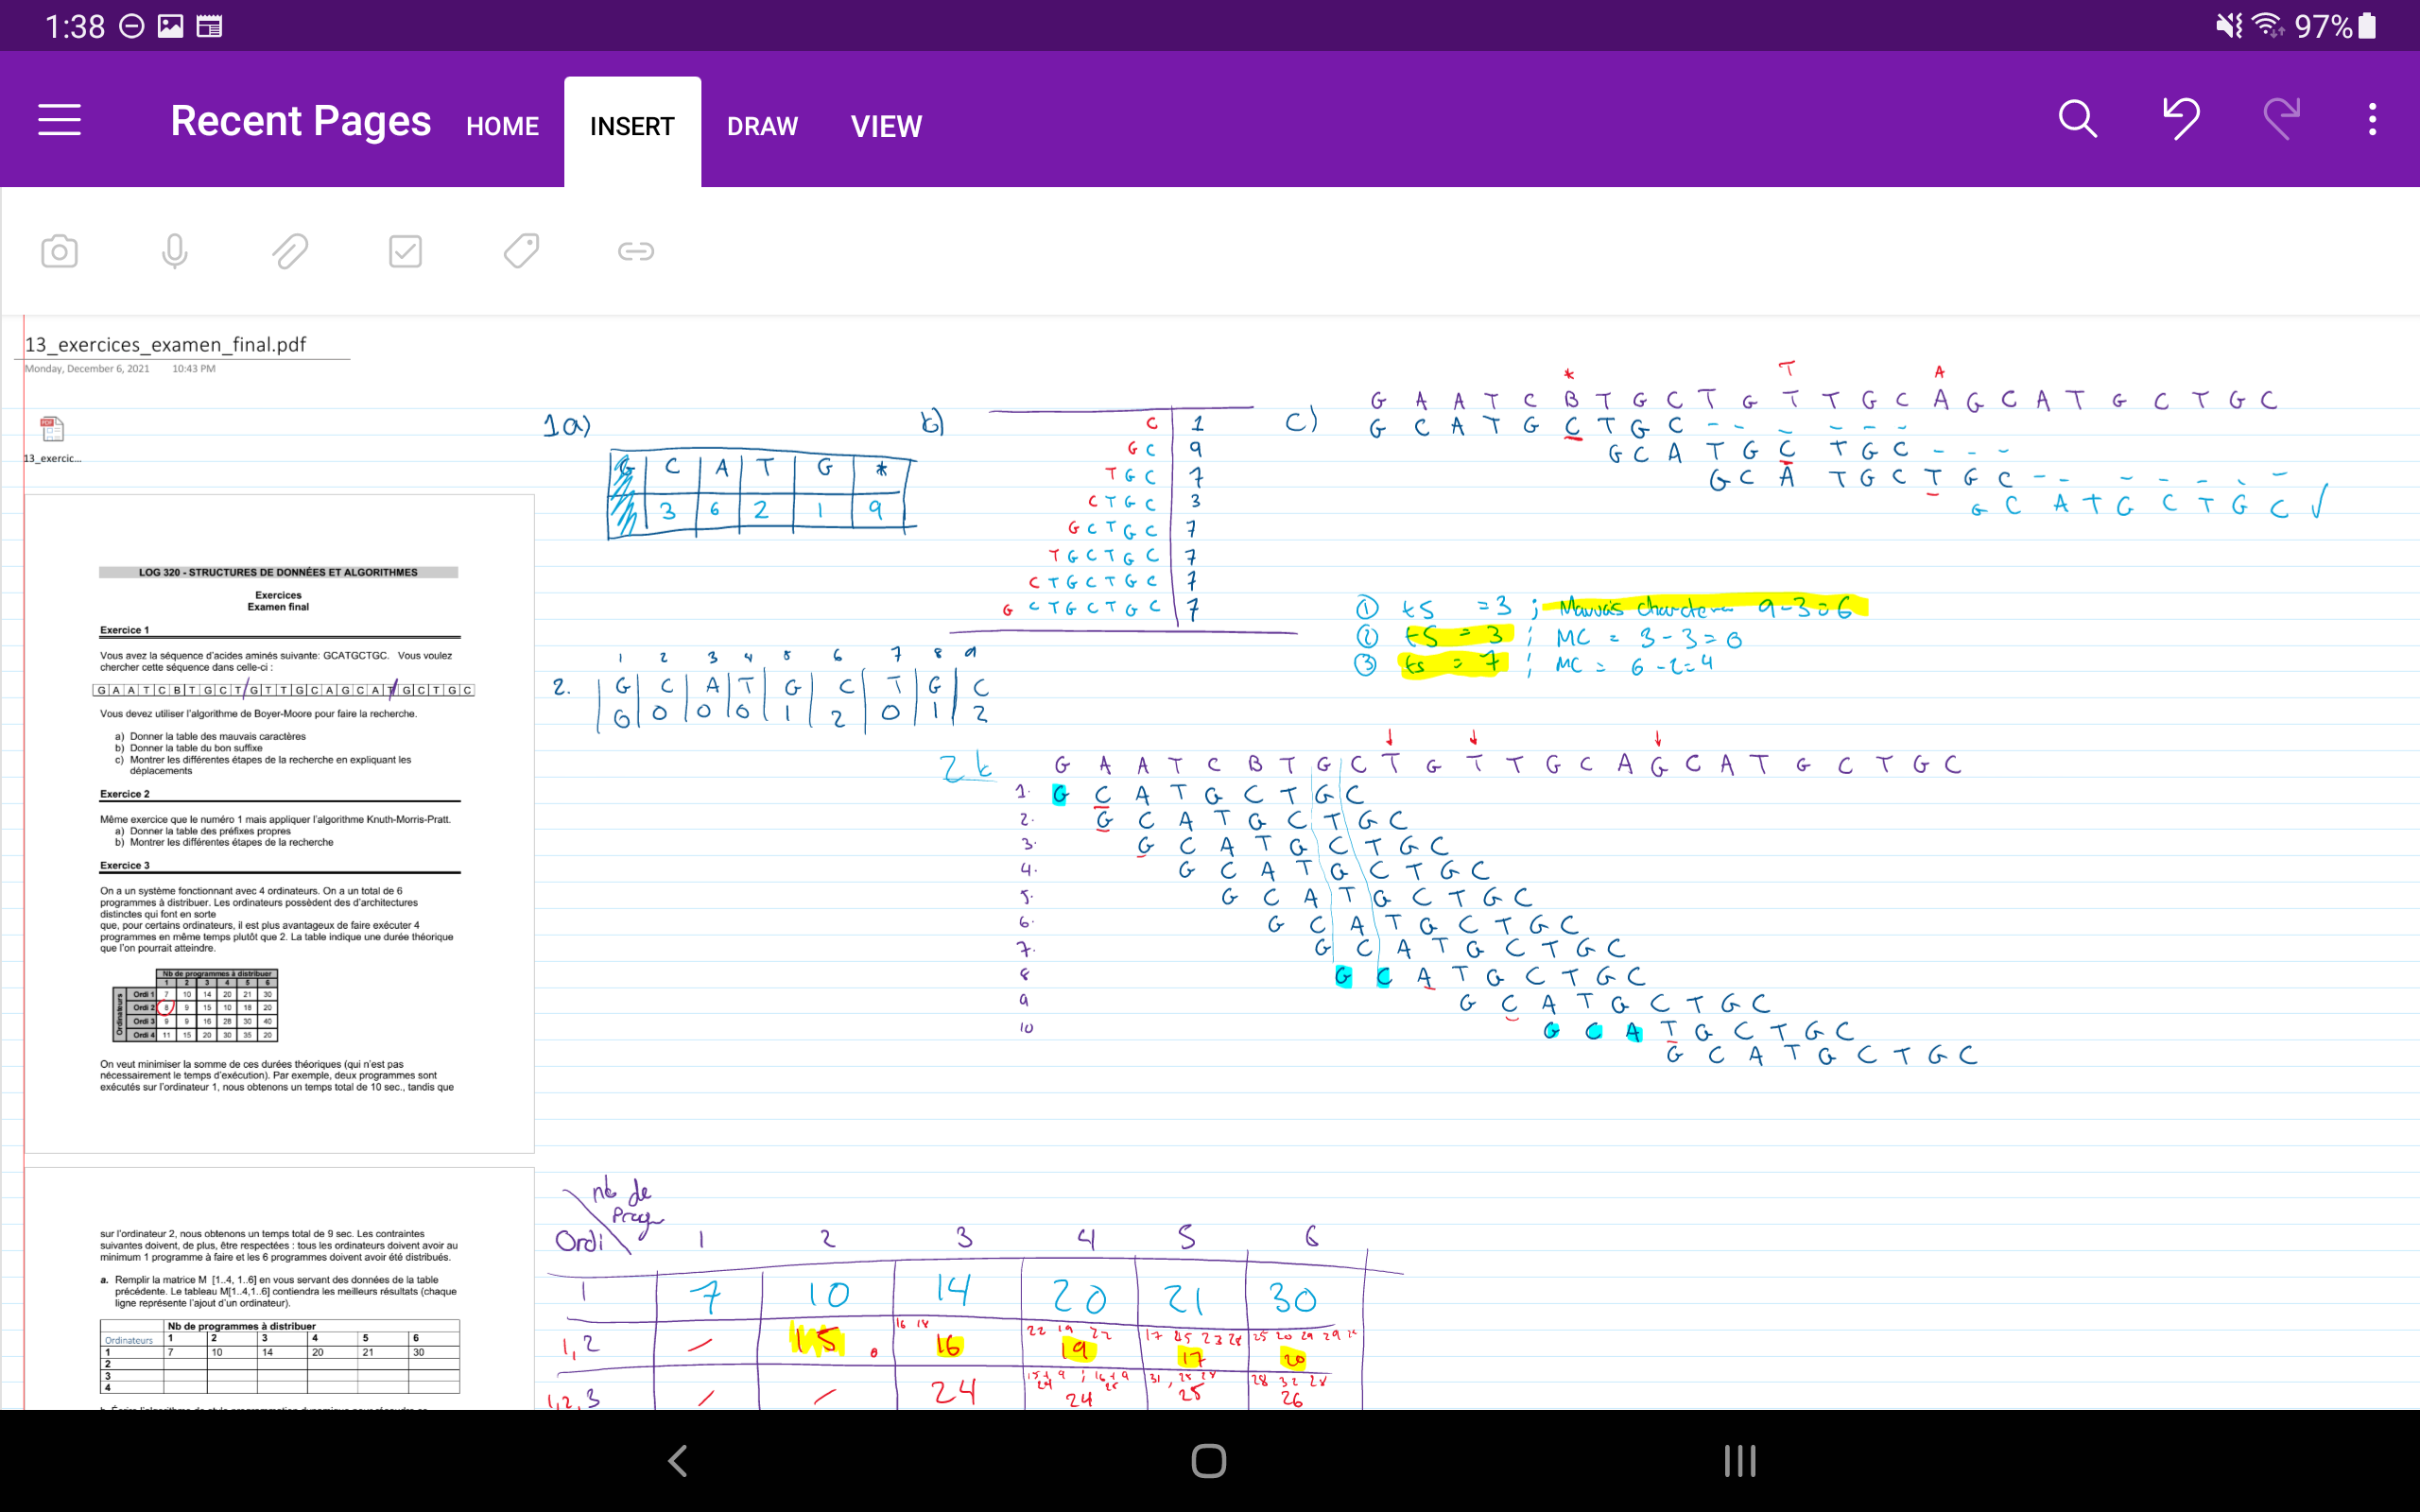 1:38 97%
Recent Pages HOME INSERT DRAW VIEW
13_exercices_examen_final.pdf
Monday, December 6, 2021 10:43 PM
13_exercic...
LOG 320 - STRUCTURES DE DONNÉES ET ALGORITHMES
Exercices
Examen final
Exercice 1
Vous avez la séquence d'acides aminés suivante: GCATGCTGC. Vous voulez
chercher cette séquence dans celle-ci :
G A A T C B T G C T G T T G C A G C A T G C T G C
Vous devez utiliser l'algorithme de Boyer-Moore pour faire la recherche.
a) Donner la table des mauvais caractères
b) Donner la table du bon suffixe
c) Montrer les différentes étapes de la recherche en expliquant les
déplacements
Exercice 2
Même exercice que le numéro 1 mais appliquer l'algorithme Knuth-Morris-Pratt.
a) Donner la table des préfixes propres
b) Montrer les différentes étapes de la recherche
Exercice 3
On a un système fonctionnant avec 4 ordinateurs. On a un total de 6
programmes à distribuer. Les ordinateurs possèdent des d'architectures
distinctes qui font en sorte
que, pour certains ordinateurs, il est plus avantageux de faire exécuter 4
programmes en même temps plutôt que 2. La table indique une durée théorique
que l'on pourrait atteindre.
Nb de programmes à distribuer
1 2 3 4 5 6
Ordinateurs
Ordi 1 7 10 14 20 21 30
Ordi 2 8 9 15 10 18 20
Ordi 3 9 9 16 28 30 40
Ordi 4 11 15 20 30 35 20
On veut minimiser la somme de ces durées théoriques (qui n'est pas
nécessairement le temps d'exécution). Par exemple, deux programmes sont
exécutés sur l'ordinateur 1, nous obtenons un temps total de 10 sec., tandis que
sur l'ordinateur 2, nous obtenons un temps total de 9 sec. Les contraintes
suivantes doivent, de plus, être respectées : tous les ordinateurs doivent avoir au
minimum 1 programme à faire et les 6 programmes doivent avoir été distribués.
a. Remplir la matrice M [1..4, 1..6] en vous servant des données de la table
précédente. Le tableau M[1..4,1..6] contiendra les meilleurs résultats (chaque
ligne représente l'ajout d'un ordinateur).
Nb de programmes à distribuer
Ordinateurs 1 2 3 4 5 6
1 7 10 14 20 21 30
2
3
4
1a)
C A T G *
3 6 2 1 9
b)
C 1
G C 9
T G C 7
C T G C 3
G C T G C 7
T G C T G C 7
C T G C T G C 7
G C T G C T G C 7
c)
* T A
G A A T C B T G C T G T T G C A G C A T G C T G C
G C A T G C T G C
G C A T G C T G C
G C A T G C T G C
G C A T G C T G C ✓
① ts = 3 ; Mauvais charactere 9-3=6
② ts = 3 ; MC = 3-3=0
③ ts = 7 ; MC = 6-2=4
1 2 3 4 5 6 7 8 9
2. G C A T G C T G C
0 0 0 0 1 2 0 1 2
2b G A A T C B T G C T G T T G C A G C A T G C T G C
1. G C A T G C T G C
2. G C A T G C T G C
3. G C A T G C T G C
4. G C A T G C T G C
5. G C A T G C T G C
6. G C A T G C T G C
7. G C A T G C T G C
8 G C A T G C T G C
9 G C A T G C T G C
10 G C A T G C T G C
G C A T G C T G C
nb de
Prog
Ordi 1 2 3 4 5 6
1 7 10 14 20 21 30
16 18 22 19 22 17 25 23 28 25 20 29 29
1,2 / 15 16 19 17 20
15+9 ; 16+9 31, 25 28 28 32 28
24 25
1,2,3 / / 24 24 25 26